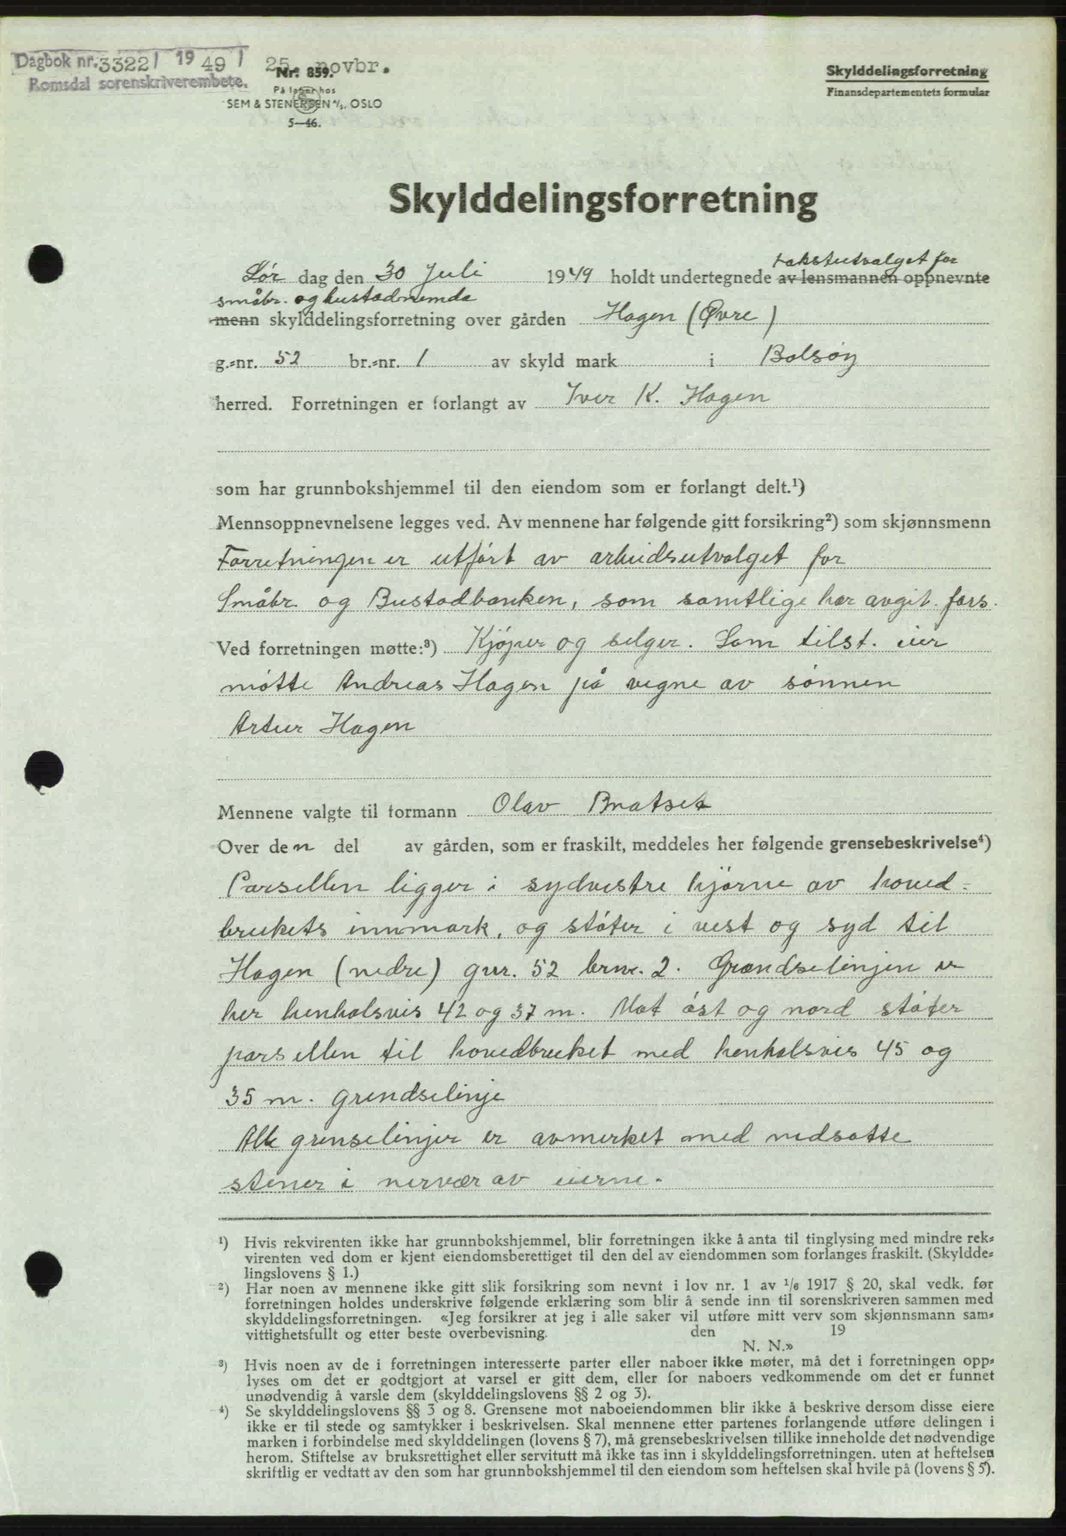 Dagbok nr. 3322 / 19 49 / 25. novbr.
Romsdal sorenskriverembete.
Nr. 859.
På lager hos
SEM & STENERSEN A/S. OSLO
5—46.
Skylddelingsforretning
Finansdepartementets formular
Skylddelingsforretning
takstutvalget for
Lør dag den 30 Juli 1949 holdt undertegnede av lensmannen oppnevnte
småbr. og bustadnemda
menn skylddelingsforretning over gården Hagen (Øvre)
g.-nr. 52 br.-nr. 1 av skyld mark i Bolsøy
herred. Forretningen er forlangt av Iver K. Hagen
som har grunnbokshjemmel til den eiendom som er forlangt delt.¹)
Mennsoppnevnelsene legges ved. Av mennene har følgende gitt forsikring²) som skjønnsmenn
Forretningen er utført av arbeidsutvalget for
Småbr. og Bustadbanken, som samtlige har avgit. fors.
Ved forretningen møtte:³) Kjøper og selger. Som tilst. eier
møtte Andreas Hagen på vegne av sønnen
Artur Hagen
Mennene valgte til formann Olav Bratset
Over den del av gården, som er fraskilt, meddeles her følgende grensebeskrivelse⁴)
Parsellen ligger i sydvestre hjørne av hoved-
brukets innmark, og støter i vest og syd til
Hagen (nedre) gnr. 52 brnr. 2. Grændselinjen er
her henholsvis 42 og 37 m. Mot øst og nord støter
parsellen til hovedbruket med henholsvis 45 og
35 m. grendselinje
Alle grenselinjer er avmerket med nedsatte
stener i nervær av eierne.
¹) Hvis rekvirenten ikke har grunnbokshjemmel, blir forretningen ikke å anta til tinglysing med mindre rek-
virenten ved dom er kjent eiendomsberettiget til den del av eiendommen som forlanges fraskilt. (Skyldde-
lingslovens § 1.)
²) Har noen av mennene ikke gitt slik forsikring som nevnt i lov nr. 1 av 1/6 1917 § 20, skal vedk. før
forretningen holdes underskrive følgende erklæring som blir å sende inn til sorenskriveren sammen med
skylddelingsforretningen. «Jeg forsikrer at jeg i alle saker vil utføre mitt verv som skjønnsmann sam-
vittighetsfullt og etter beste overbevisning. den 19
N. N.»
³) Hvis noen av de i forretningen interesserte parter eller naboer ikke møter, må det i forretningen opp-
lyses om det er godtgjort at varsel er gitt dem, eller for naboers vedkommende om det er funnet
unødvendig å varsle dem (skylddelingslovens §§ 2 og 3).
⁴) Se skylddelingslovens §§ 3 og 8. Grensene mot naboeiendommen blir ikke å beskrive dersom disse eiere
ikke er til stede og samtykker i beskrivelsen. Skal mennene etter partenes forlangende utføre delingen i
marken i forbindelse med skylddelingen (lovens § 7), må grensebeskrivelsen tillike inneholde det nødvendige
herom. Stiftelse av bruksrettighet eller servitutt må ikke tas inn i skylddelingsforretningen. uten at heftelsen
skriftlig er vedtatt av den som har grunnbokshjemmel til den eiendom som heftelsen skal hvile på (lovens § 5).